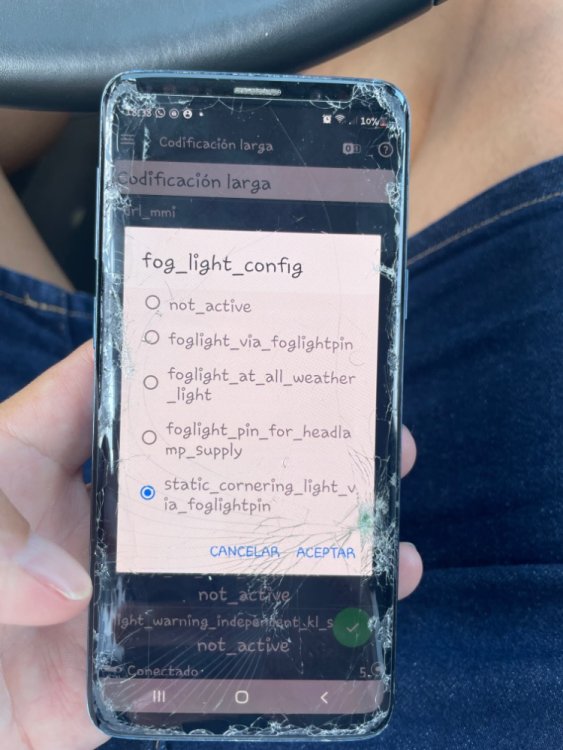 18:38
10%
Codificación larga
Codificación larga
drl_mmi
fog_light_config
not_active
foglight_via_foglightpin
foglight_at_all_weather
_light
foglight_pin_for_headla
mp_supply
static_cornering_light_v
ia_foglightpin
CANCELAR ACEPTAR
not_active
ight_warning_independent_kl_s
not_active
Conectado